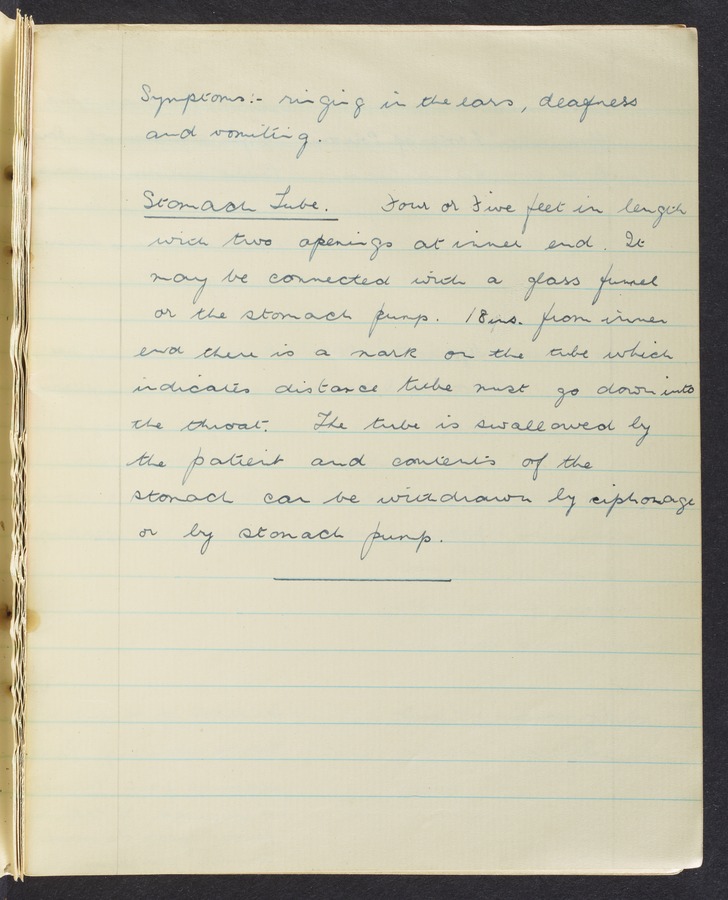 Symptoms:- ringing in the ears, deafness
and vomiting.
Stomach Tube. Four or Five feet in length
with two openings at inner end. It
may be connected with a glass funnel
or the stomach pump. 18 ins. from inner
end there is a mark on the tube which
indicates distance tube must go down into
the throat. The tube is swallowed by
the patient and contents of the
stomach can be withdrawn by ciphonage
or by stomach pump.